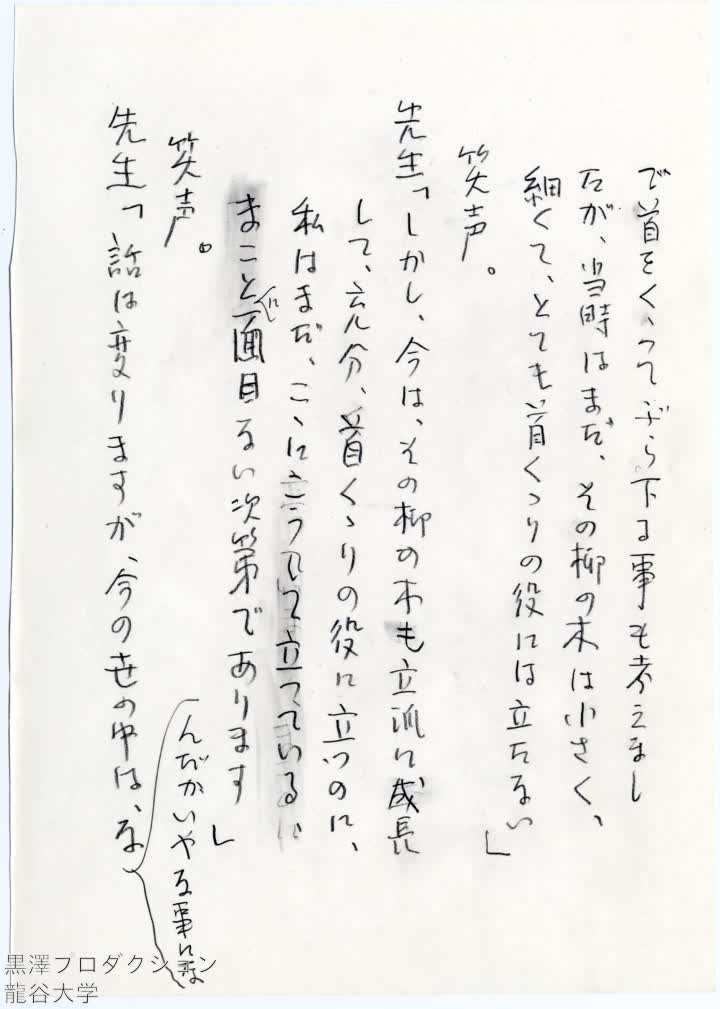 で首をくゝってぶら下る事も考えまし
たが、当時はまだ、その柳の木は小さく、
細くて、とても首くゝりの役には立たない」
笑声。
先生「しかし、今は、その柳の木も立派に成長
して、充分、首くゝりの役に立つのに、
私はまだ、こゝに立っている
まことに面目ない次第であります」
笑声。
先生「話は変りますが、今の世の中は、な
んだかいやな事にな
黒澤プロダクション
龍谷大学